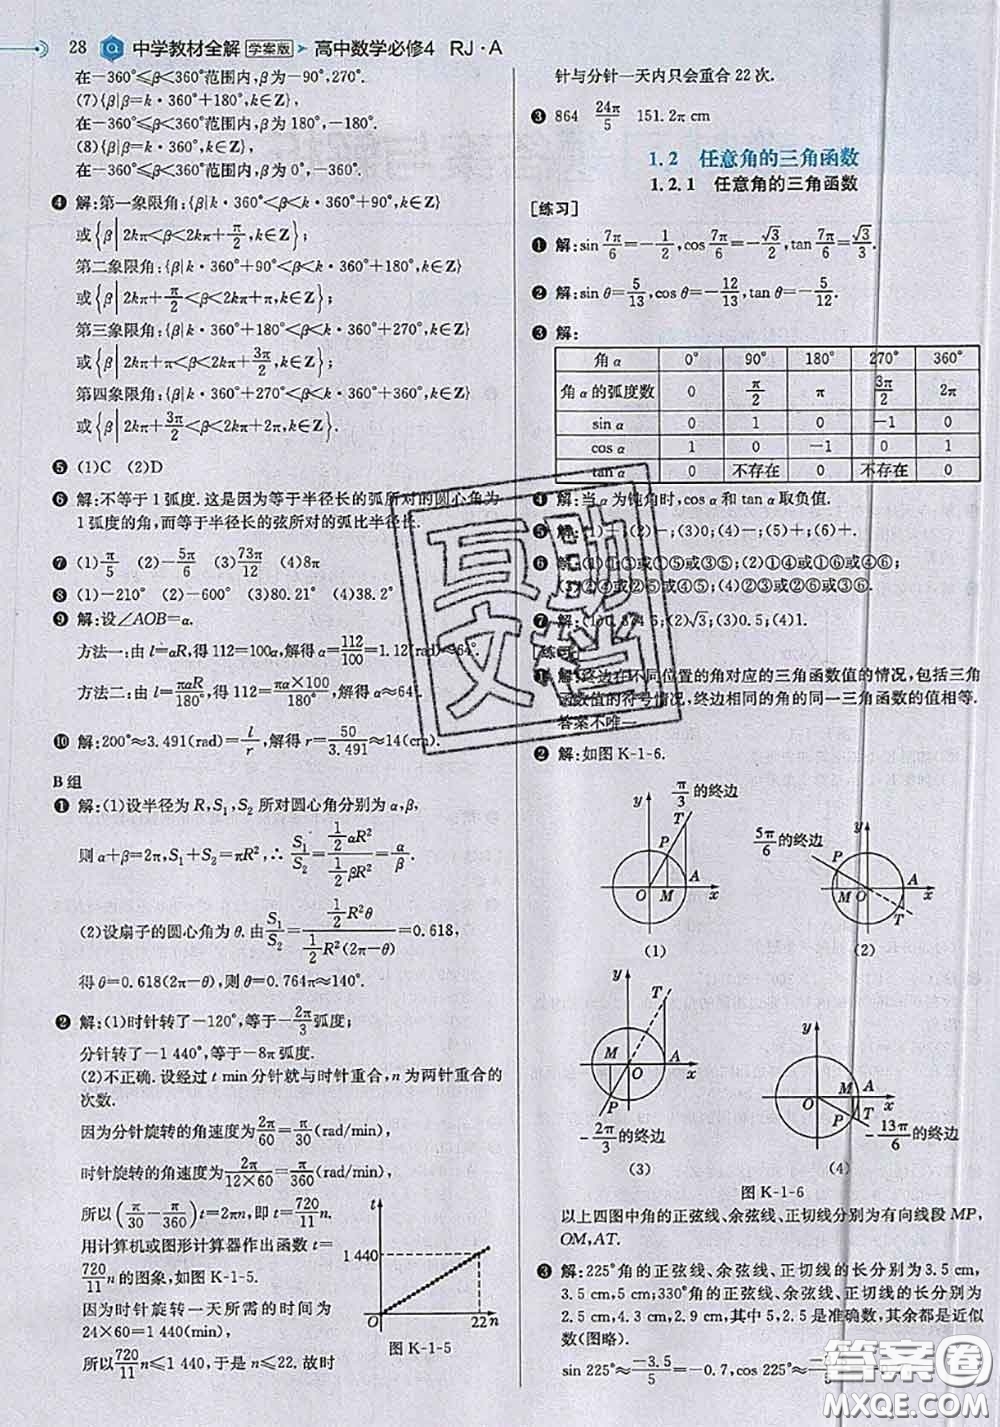 28 中学教材全解 学案版 高中数学必修4 RJ·A
在-360°≤β<360°范围内,β为-90°,270°.
(7){β|β=k·360°+180°,k∈Z},
在-360°≤β<360°范围内,β为180°,-180°.
(8){β|β=k·360°,k∈Z},
在-360°≤β<360°范围内,β为0°,-360°.
❹ 解:第一象限角:{β|k·360°<β<k·360°+90°,k∈Z}
或{β|2kπ<β<2kπ+π/2,k∈Z};
第二象限角:{β|k·360°+90°<β<k·360°+180°,k∈Z}
或{β|2kπ+π/2<β<2kπ+π,k∈Z};
第三象限角:{β|k·360°+180°<β<k·360°+270°,k∈Z}
或{β|2kπ+π<β<2kπ+3π/2,k∈Z};
第四象限角:{β|k·360°+270°<β<k·360°+360°,k∈Z}
或{β|2kπ+3π/2<β<2kπ+2π,k∈Z}.
❺ (1)C (2)D
❻ 解:不等于1弧度.这是因为等于半径长的弧所对的圆心角为
1弧度的角,而等于半径长的弦所对的弧比半径长.
❼ (1)π/5 (2)-5π/6 (3)73π/12 (4)8π
❽ (1)-210° (2)-600° (3)80.21° (4)38.2°
❾ 解:设∠AOB=α.
方法一:由l=αR,得112=100α,解得α=112/100=1.12(rad)≈64°.
方法二:由l=παR/180°,得112=πα×100/180°,解得α≈64°.
❿ 解:200°≈3.491(rad)=l/r,解得r=50/3.491≈14(cm).
B组
❶ 解:(1)设半径为R,S₁,S₂所对圆心角分别为α,β,
则α+β=2π,S₁+S₂=πR²,∴S₁/S₂=(1/2 αR²)/(1/2 βR²)=α/β.
(2)设扇子的圆心角为θ.由S₁/S₂=(1/2 R²θ)/(1/2 R²(2π-θ))=0.618,
得θ=0.618(2π-θ),则θ=0.764π≈140°.
❷ 解:(1)时针转了-120°,等于-2π/3弧度;
分针转了-1 440°,等于-8π弧度.
(2)不正确.设经过t min分针就与时针重合,n为两针重合的
次数.
因为分针旋转的角速度为2π/60=π/30(rad/min),
时针旋转的角速度为2π/(12×60)=π/360(rad/min),
所以(π/30-π/360)t=2πn,即t=720/11 n.
用计算机或图形计算器作出函数t=
720/11 n的图象,如图K-1-5.
因为时针旋转一天所需的时间为
24×60=1 440(min),
所以720/11 n≤1 440,于是n≤22.故时
t
1 440
O 22 n
图K-1-5
针与分针一天内只会重合22次.
❸ 864 24π/5 151.2π cm
1.2 任意角的三角函数
1.2.1 任意角的三角函数
[练习]
❶ 解:sin 7π/6=-1/2,cos 7π/6=-√3/2,tan 7π/6=√3/3.
❷ 解:sin θ=5/13,cos θ=-12/13,tan θ=-5/12.
❸ 解:
角α 0° 90° 180° 270° 360°
角α的弧度数 0 π/2 π 3π/2 2π
sin α 0 1 0 -1 0
cos α 1 0 -1 0 1
tan α 0 不存在 0 不存在 0
❹ 解:当α为钝角时,cos α和tan α取负值.
❺ 解:(1)+;(2)-;(3)0;(4)-;(5)+;(6)+.
❻ 解:(1)①③或①⑤或③⑤;(2)①④或①⑥或④⑥;
(3)②④或②⑤或④⑤;(4)②③或②⑥或③⑥.
❼ 解:(1)0.874 6;(2)√3;(3)0.5;(4)1.
[练习]
❶ 解:终边在不同位置的角对应的三角函数值的情况,包括三角
函数值的符号情况,终边相同的角的同一三角函数的值相等.
答案不唯一.
❷ 解:如图K-1-6.
π/3的终边
y T P A O M x
(1)
5π/6的终边
y P A M O x T
(2)
y T M A O x P
-2π/3的终边
(3)
y M A O x P T
-13π/6的终边
(4)
图K-1-6
以上四图中角的正弦线、余弦线、正切线分别为有向线段MP,
OM,AT.
❸ 解:225°角的正弦线、余弦线、正切线的长分别为3.5 cm,
3.5 cm,5 cm;330°角的正弦线、余弦线、正切线的长分别为
2.5 cm,4.3 cm,2.9 cm,其中5,2.5是准确数,其余都是近似
数(图略).
sin 225°≈-3.5/5=-0.7,cos 225°≈
互助文档
答案圈
MXQE.COM